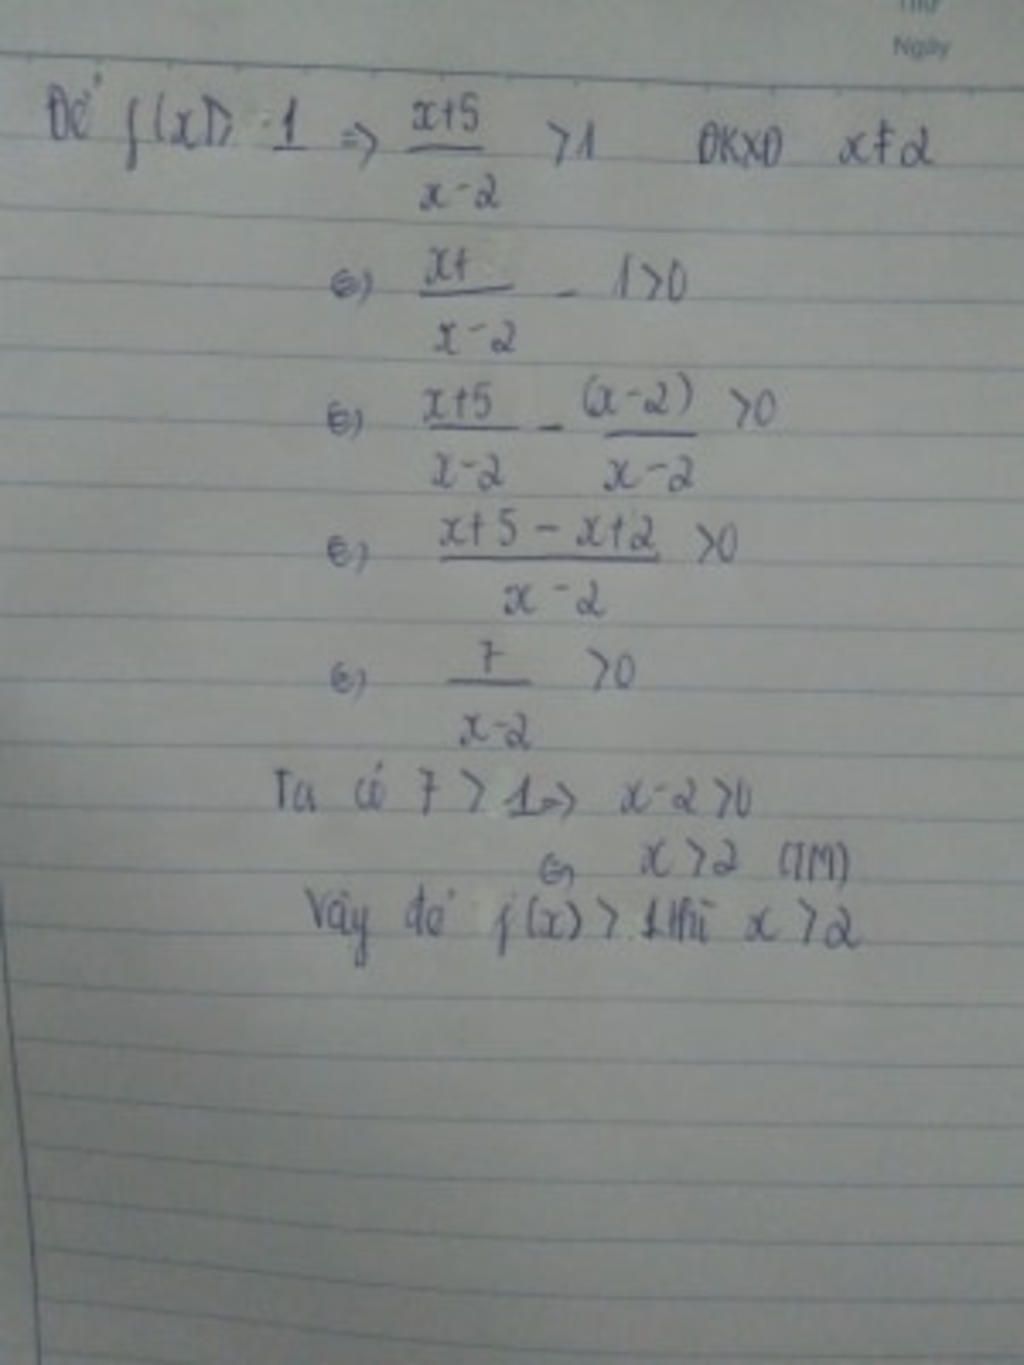 Thứ
Ngày
Để f(x) > 1 => x+5/x-2 > 1 ĐKXĐ x ≠ 2
<=> x+/x-2 - 1 > 0
<=> x+5/x-2 - (x-2)/x-2 > 0
<=> x+5-x+2/x-2 > 0
<=> 7/x-2 > 0
Ta có 7 > 1 => x-2 > 0
<=> x > 2 (TM)
Vậy để f(x) > 1 thì x > 2